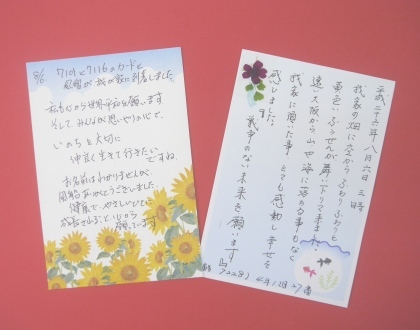 8/6 7109と7116のカードと
風船が我が家に到着しました
私も心から世界平和を願います
そして みんなが思いやりの心で、
いのちを大切に
仲良く生きて行きたい
ですね
お名前はわかりませんが
風船ありがとうございました
健康で やさしいひとに
成長されること 心から
願っています
平成二十六年八月六日 三時
我家の畑に空からふわりふわりと
黄色いふうせんが舞い下りて来ました
遠い大阪から山や海に落る事もなく
我家に頂いた事 とても感動し幸せを
感じました。
戦争のない未来を願います